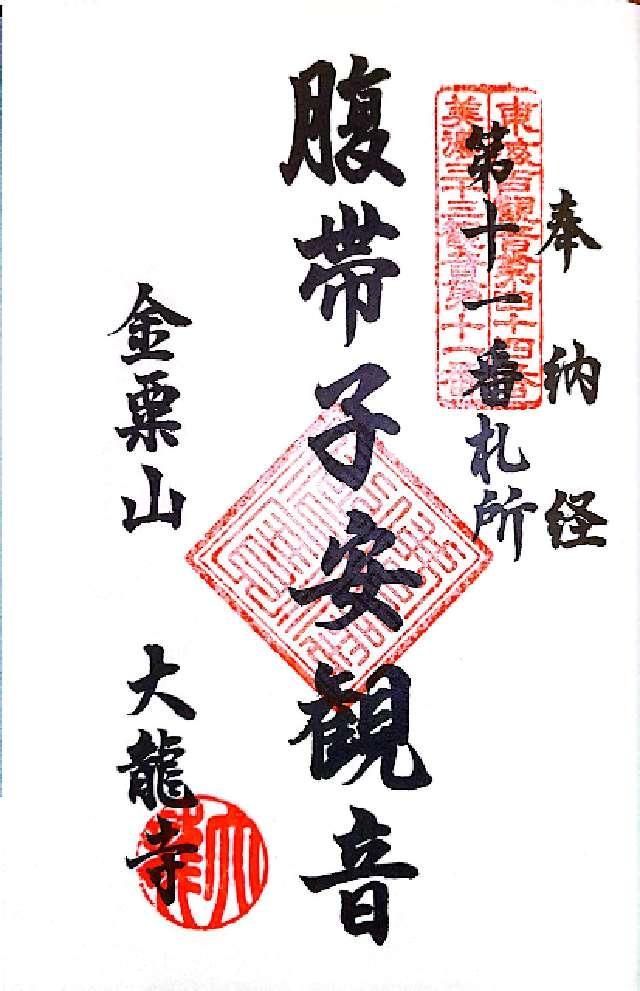 奉納経
東海百観音第四十四番
美濃三十三観音第十一番
第十一番札所
腹帯子安観音
金粟山 大龍寺